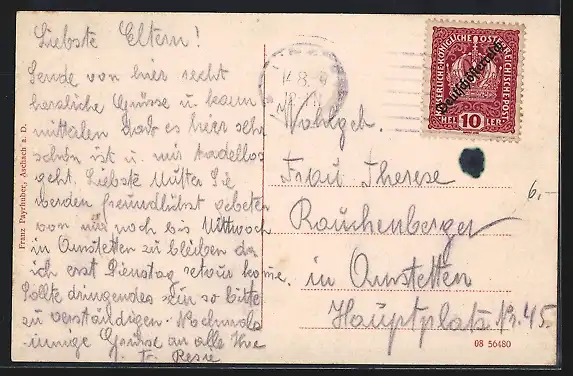 Liebste Eltern!
Sende von hier recht
herzliche Grüsse u. kann
mitteilen daß es hier sehr
schön ist u. mir tadellos
geht. Liebste Mutter Sie
werden freundlichst gebeten
von mir noch bis Mittwoch
in Amstetten zu bleiben da
ich erst Dienstag retour komme.
Sollte dringendes sein so bitte
zu verständigen. Nochmals
innige Grüsse an alle Ihre
tr. Resie
Franz Payrhuber, Aschach a. D.
KAISERLICHE-KÖNIGLICHE ÖSTERREICHISCHE POST
Deutschösterreich
10
HELLER
14.8.
Wohlgeb.
Frau Therese
Rauchenberger
in Amstetten
Hauptplatz Nr. 45.
6,-
08 56480